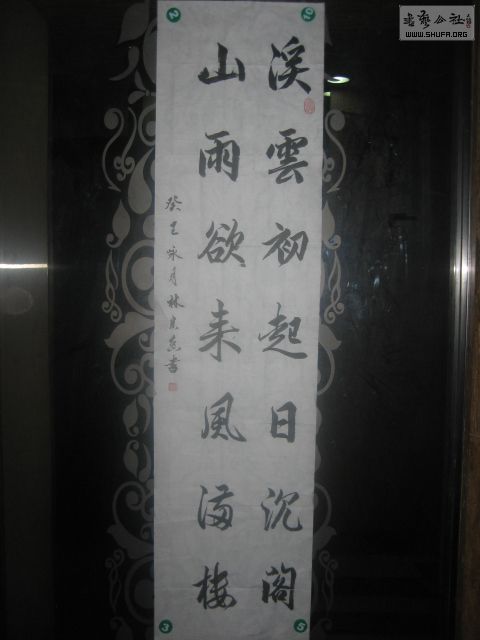 溪雲初起日沉閣
山雨欲来風滿樓
癸巳
林
書
書藝公社
WWW.SHUFA.ORG